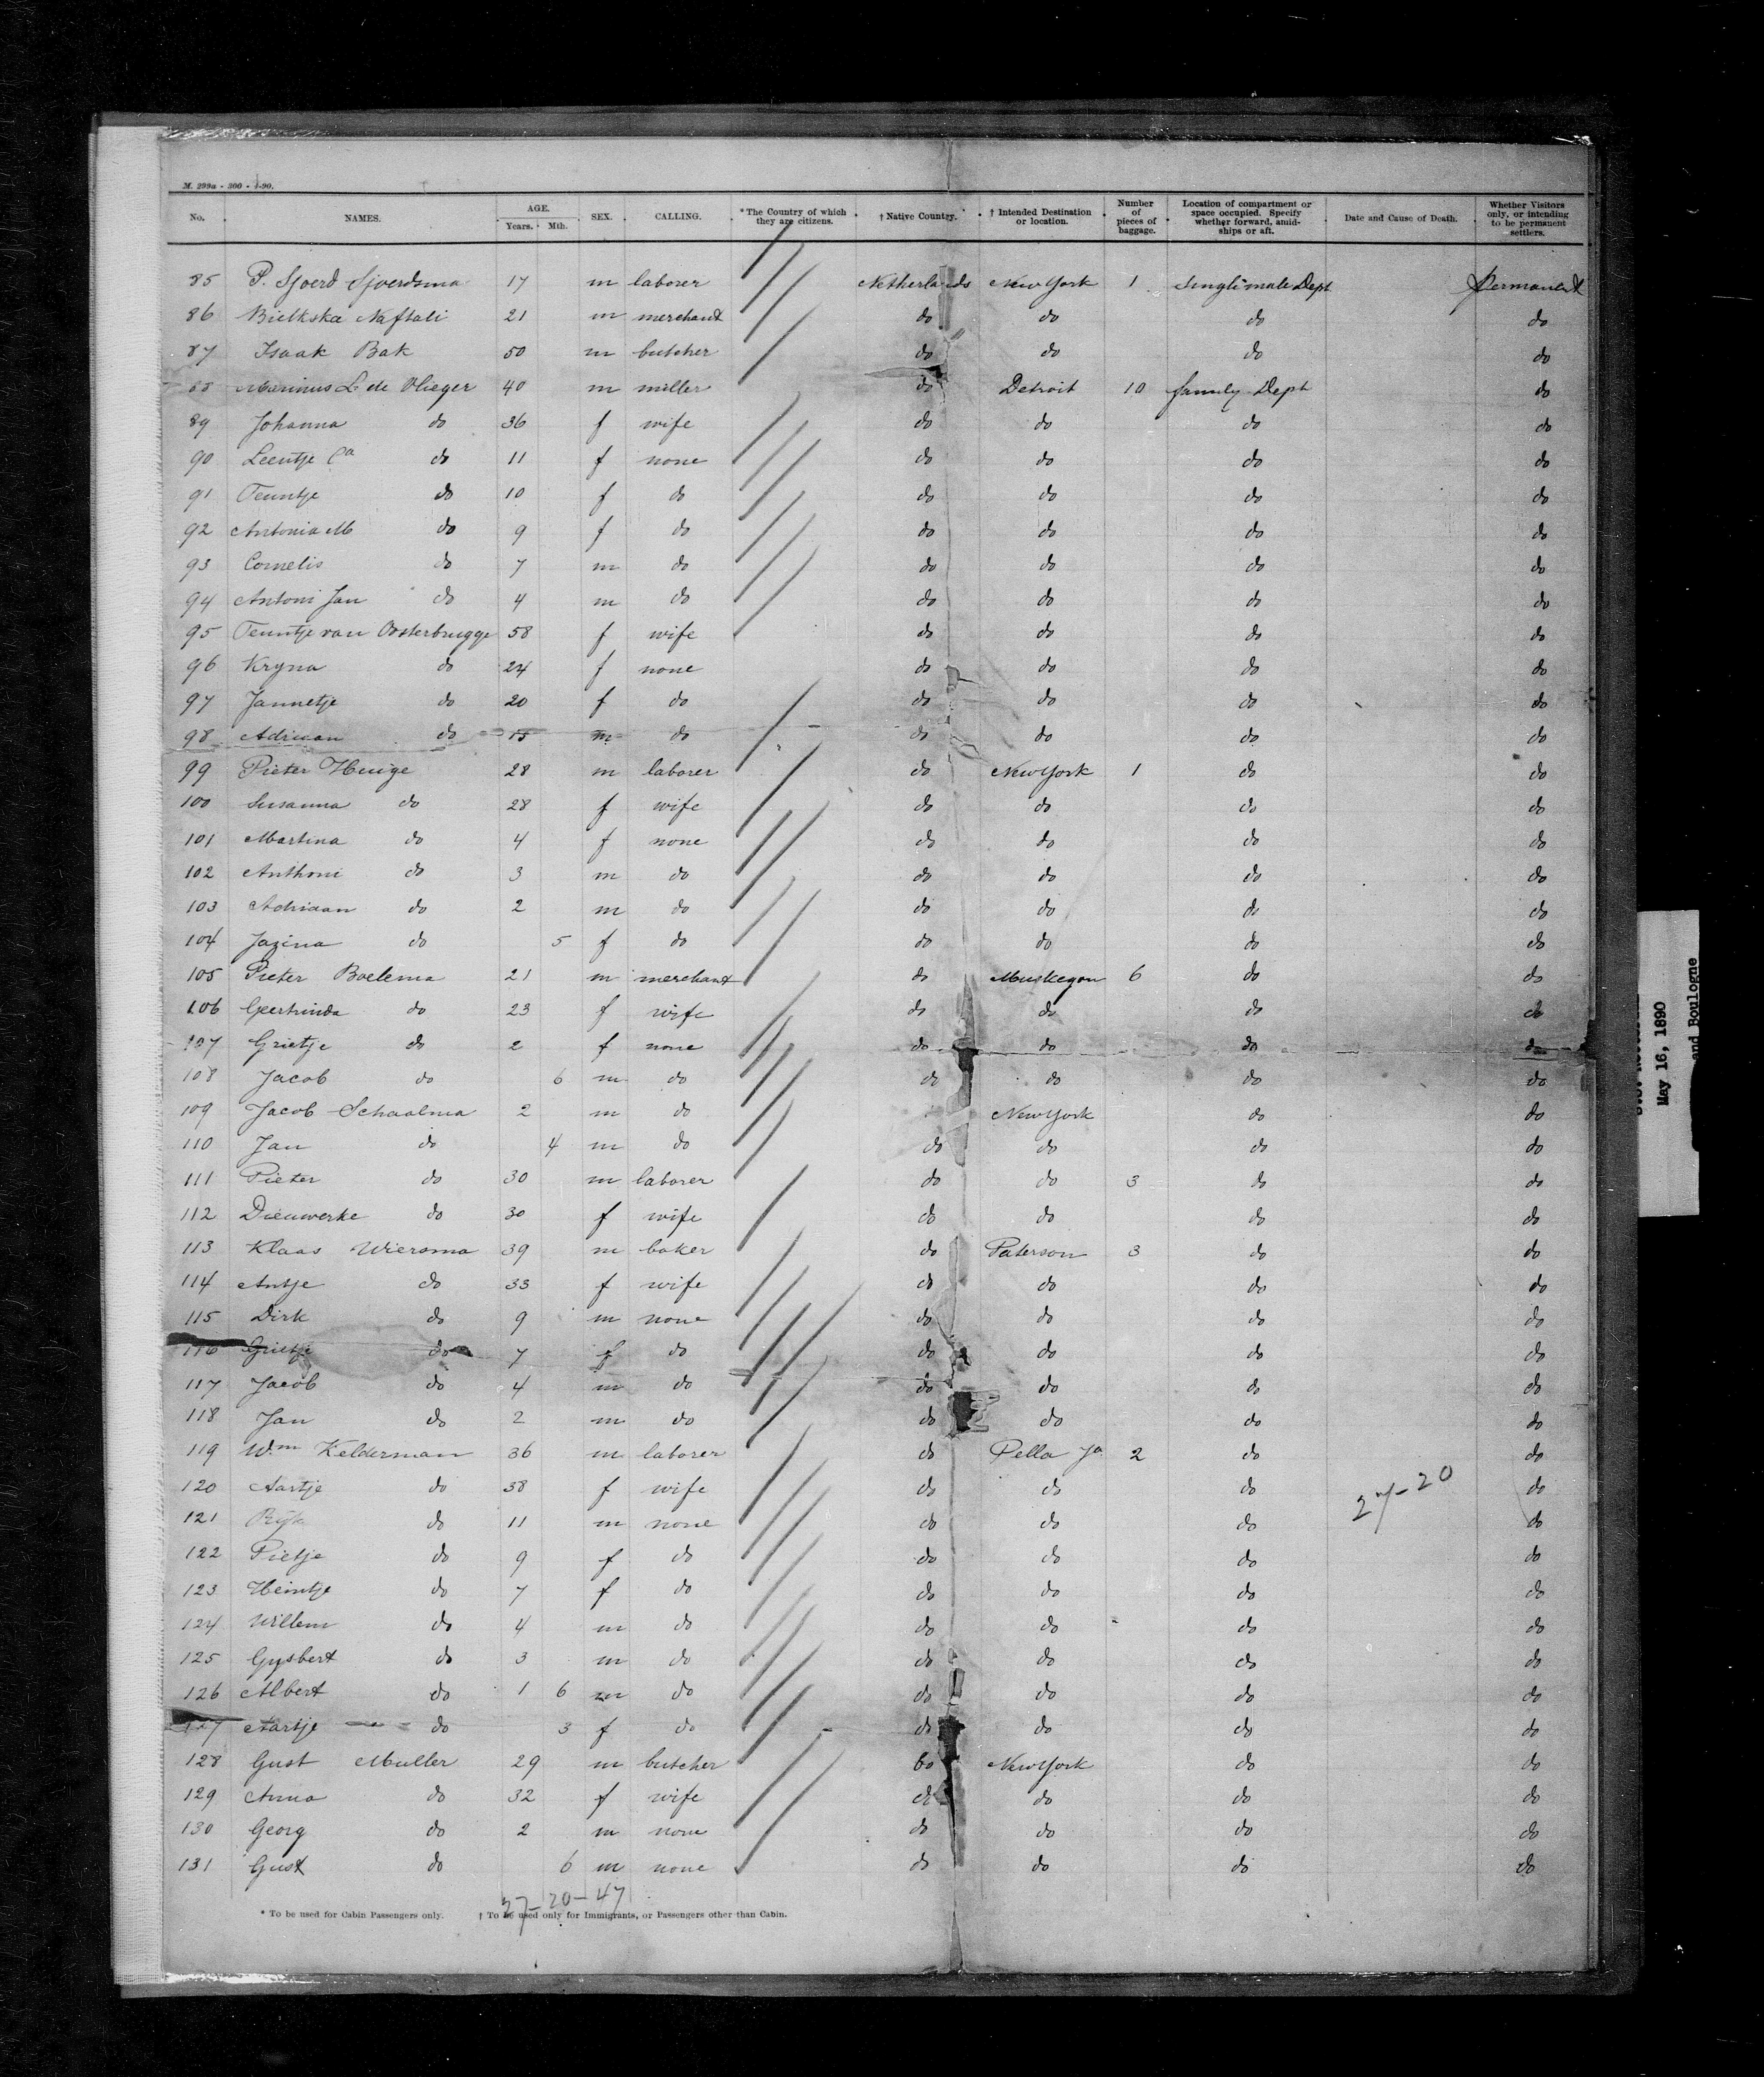 M. 299a - 300 - 4-90.
No. NAMES. AGE. Years. Mth. SEX. CALLING. *The Country of which they are citizens. †Native Country. †Intended Destination or location. Number of pieces of baggage. Location of compartment or space occupied. Specify whether forward, amidships or aft. Date and Cause of Death. Whether Visitors only, or intending to be permanent settlers.
85 P. Sjoerd Sjoerdsma 17 m laborer Netherlands New York 1 Single male Dept Permanent
86 Bielkska Naftali 21 m merchant do do do do
87 Isaak Bak 50 m butcher do do do do
88 Marinus L de Vlieger 40 m miller do Detroit 10 family Dept do
89 Johanna do 36 f wife do do do do
90 Leentje Ca do 11 f none do do do do
91 Teuntje do 10 f do do do do do
92 Antonia M do 9 f do do do do do
93 Cornelis do 7 m do do do do do
94 Antoni Jan do 4 m do do do do do
95 Teuntje van Oosterbrugge 58 f wife do do do do
96 Kryna do 24 f none do do do do
97 Jannetje do 20 f do do do do do
98 Adriaan do 15 m do do do do do
99 Pieter Huige 28 m laborer do New York 1 do do
100 Susanna do 28 f wife do do do do
101 Martina do 4 f none do do do do
102 Anthoni do 3 m do do do do do
103 Adriaan do 2 m do do do do do
104 Jazina do 5 f do do do do do
105 Pieter Boelema 21 m merchant do Muskegon 6 do do
106 Geertruida do 23 f wife do do do do
107 Grietje do 2 f none do do do do
108 Jacob do 6 m do do do do do
109 Jacob Schaalma 2 m do New York do do
110 Jan do 4 m do do do do do
111 Pieter do 30 m laborer do do 3 do do
112 Dieuwerke do 30 f wife do do do do
113 Klaas Wiersma 39 m baker do Paterson 3 do do
114 Antje do 33 f wife do do do do
115 Dirk do 9 m none do do do do
116 Grietje do 7 f do do do do do
117 Jacob do 4 m do do do do do
118 Jan do 2 m do do do do do
119 Wm Kelderman 36 m laborer do Pella Ja 2 do do
120 Aartje do 38 f wife do do do 27-20 do
121 Ryk do 11 m none do do do do
122 Pietje do 9 f do do do do do
123 Heintje do 7 f do do do do do
124 Willem do 4 m do do do do do
125 Gysbert do 3 m do do do do do
126 Albert do 1 6 m do do do do do
127 Aartje do 3 f do do do do do
128 Gust Muller 29 m butcher do New York do do
129 Anna do 32 f wife do do do do
130 Georg do 2 m none do do do do
131 Gust do 6 m none do do do do
27-20-47
* To be used for Cabin Passengers only. † To be used only for Immigrants, or Passengers other than Cabin.
May 16, 1890
and Boulogne